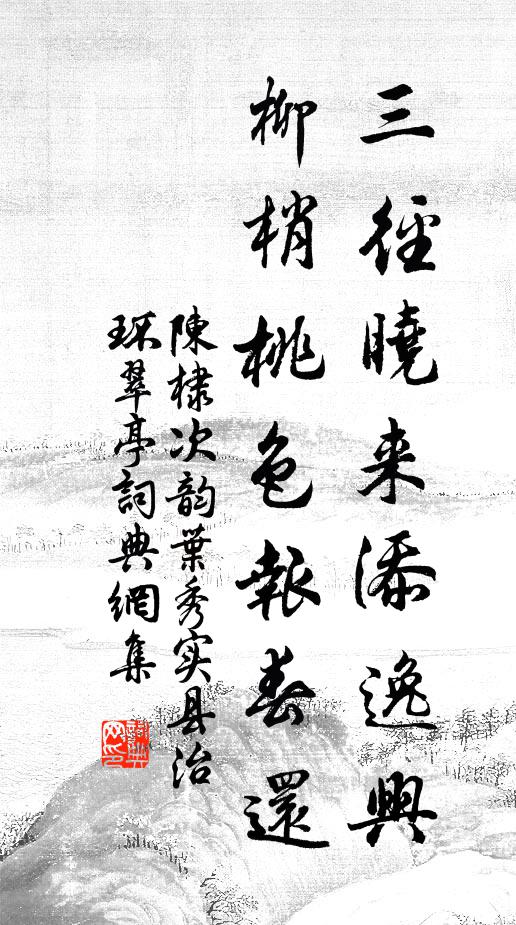 三徑曉来添逸興
柳梢桃色報春還
陳棣次韵葉秀实县治
环翠亭詞典網集
詞典网印